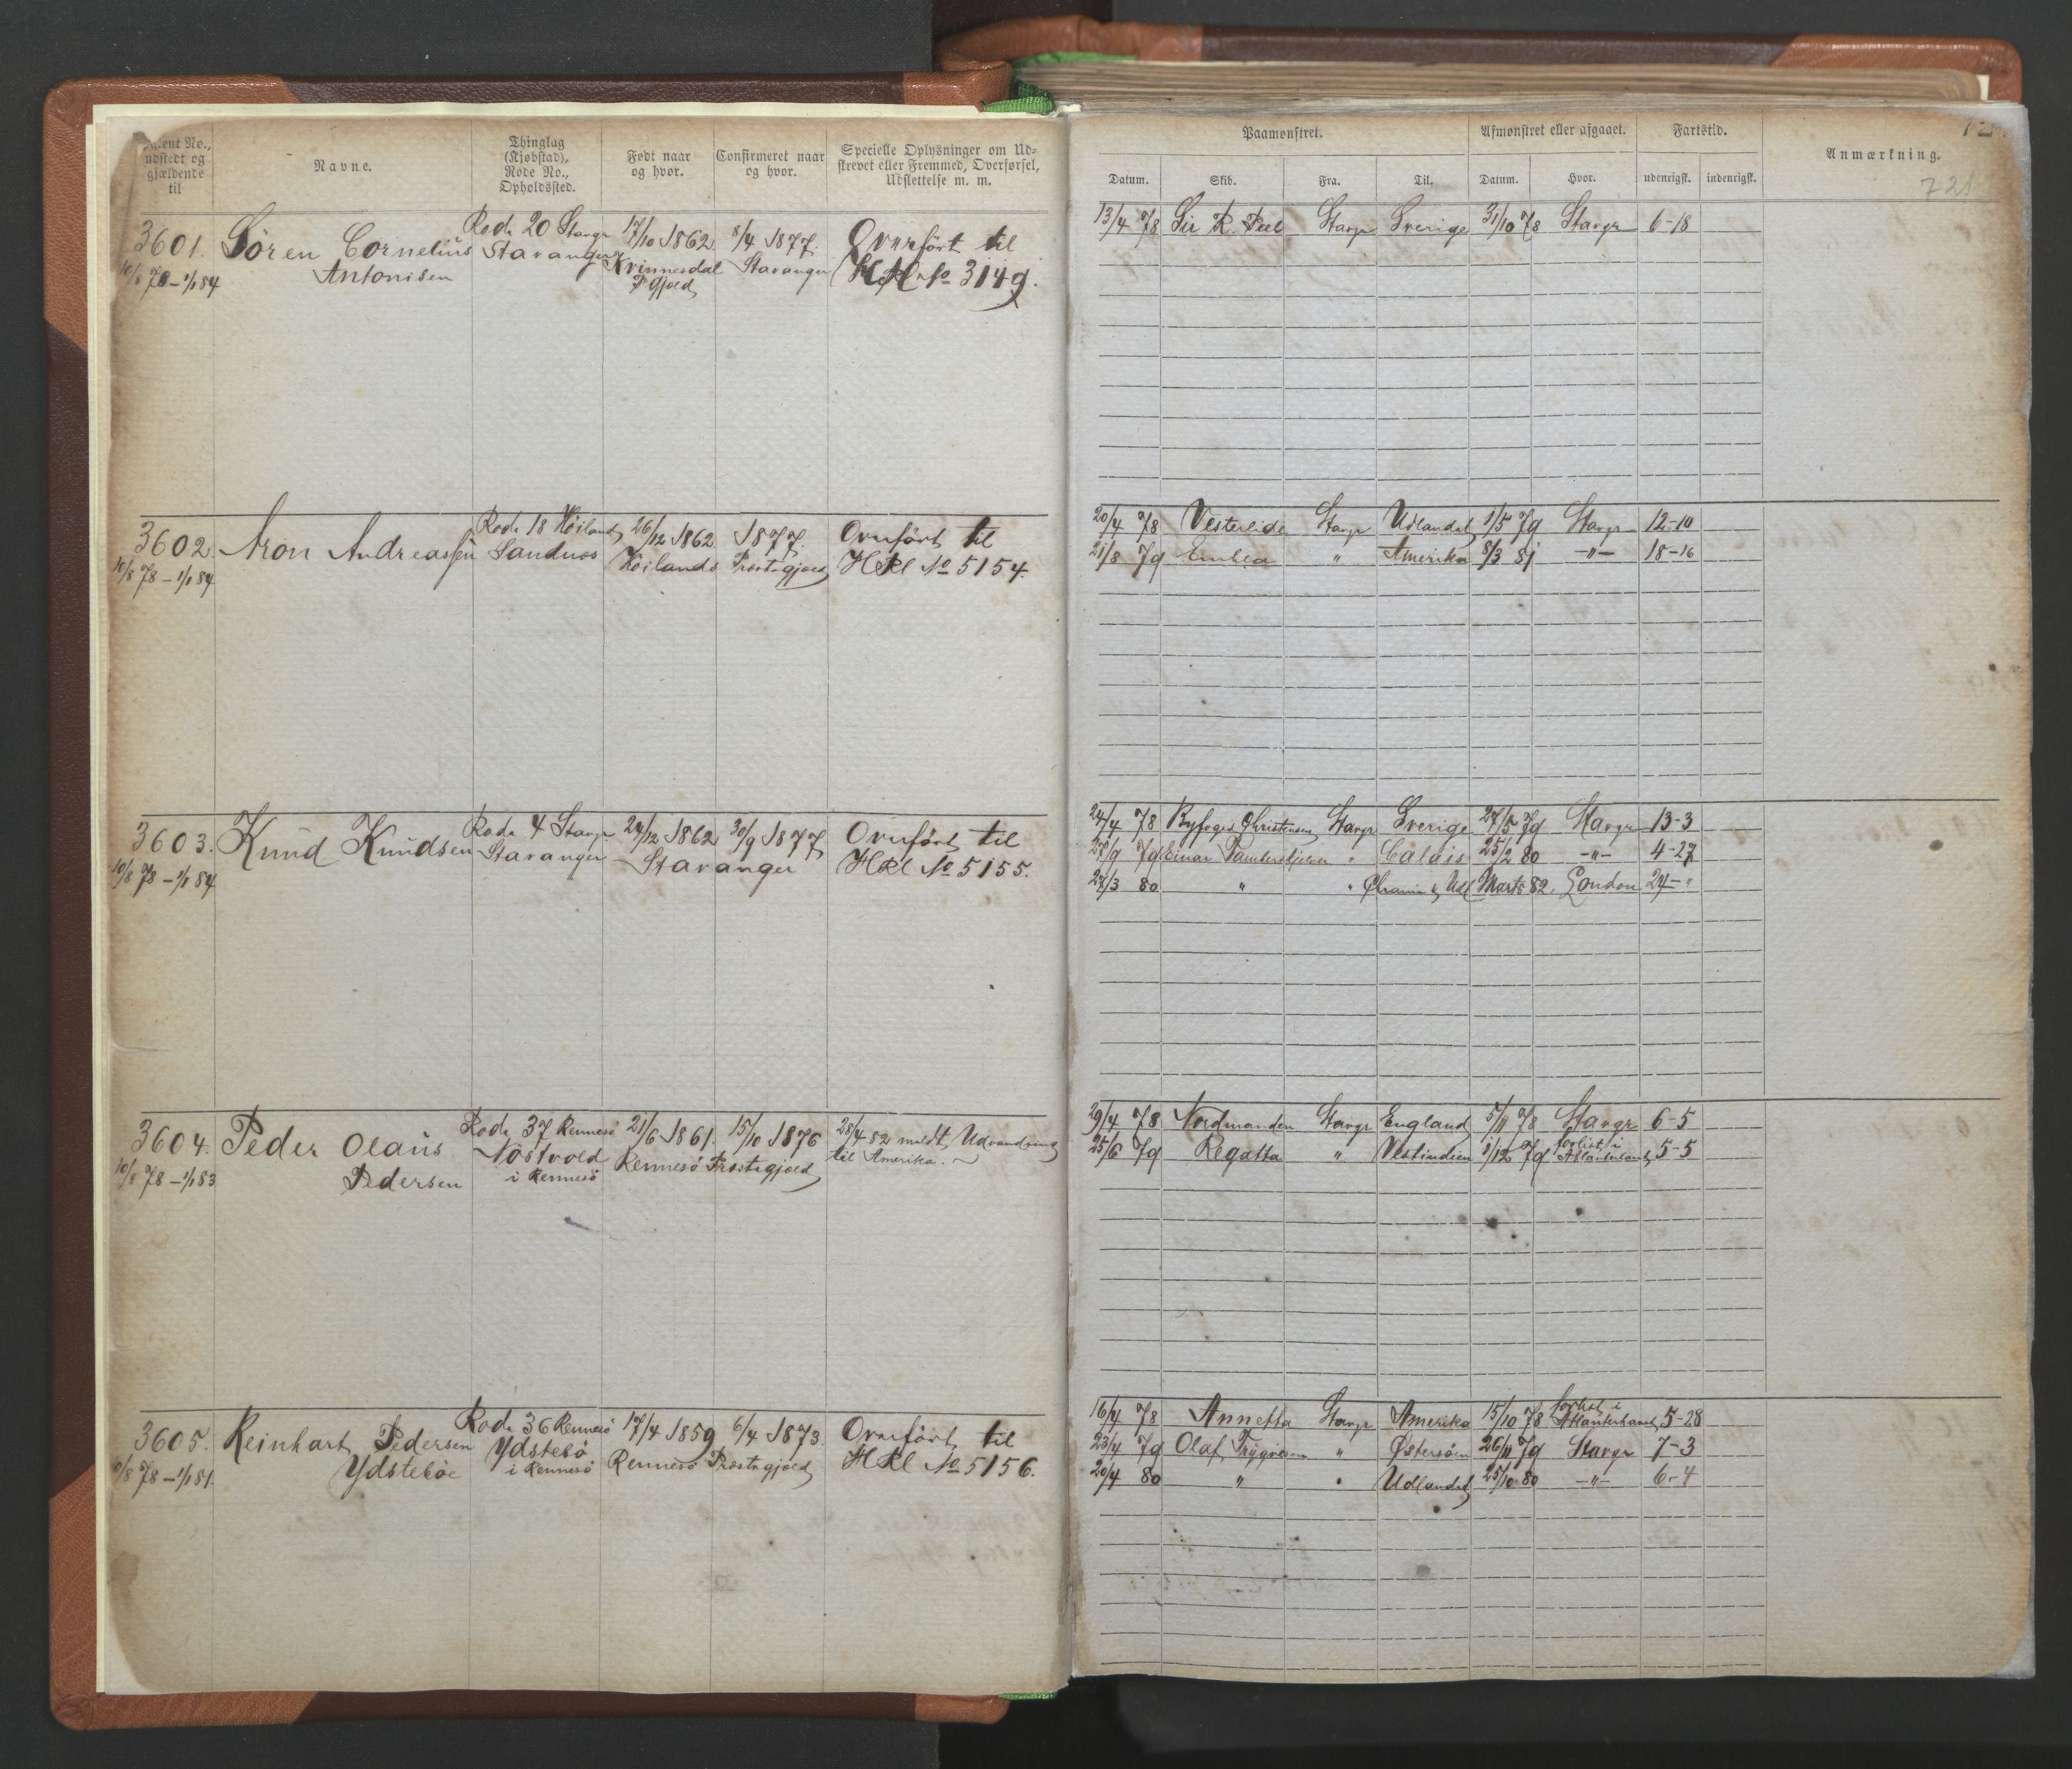 Patent No., udstedt og gjældende til
Navne.
Thinglag (Kjøbstad), Rode No., Opholdssted.
Født naar og hvor.
Confirmeret naar og hvor.
Specielle Oplysninger om Udskrevet eller Fremmed, Overførsel, Udslettelse m. m.
Paamønstret.
Afmønstret eller afgaaet.
Fartstid.
Anmærkning.
Datum. Skib. Fra. Til. Datum. Hvor. udenrigsk. indenrigsk.
721
3601. Sören Cornelius Rode 20 Stavgr 17/10 1862 8/4 1877. Overfört til
10/8 78 – 1/1 84 Antonisen Stavanger Kvinnesdal Stavanger HRl No 3149.
P gjæld
13/4 78 Sir R. Peel Stavgr Sverige 31/10 78 Stavgr 6-18
3602. Aron Andreassen Rode 18 Höiland 26/12 1862. 1877. Overfört til
10/8 78 – 1/1 84 Sandnæs Höilands Præstegjæld HRl No 5154.
20/4 78 Vesterlide Stavgr Udlandet 1/5 79 Stavgr 12-10
21/8 79 Embla " Amerika 8/3 81 –"– 18-16
3603. Knud Knudsen Rode 4 Stavgr 24/12 1862 30/9 1877. Overfört til
10/8 78 – 1/1 84 Stavanger Stavanger HRl No 5155.
24/4 78 Christensen Stavgr Sverige 27/5 79 Stavgr 13-3
27/9 79 Einar Tambarskjelver " Calais 25/2 80 –"– 4-27
27/3 80 " " & Udl Marts 82 London 24– "
3604. Peder Olaus Rode 37 Rennesö 21/6 1861. 15/10 1876 28/4 82 meldt Udvandring
10/8 78 – 1/1 83 Pedersen i Rennesö Rennesö Præstegjæld til Amerika.
29/4 78 Nordmanden Stavgr England 5/11 78 Stavgr 6-5
25/6 79 Regatta " Vestindien 1/12 79 forlist i Atlanterhavet 5-5
3605. Reinhart Pedersen Rode 36 Rennesö 17/4 1859 6/4 1873. Overfört til
10/8 78 – 1/1 81. Ydsteböe Ydstebö i Rennesö Rennesö Præstegjæld HRl No 5156.
16/4 78 Annetta Stavgr Amerika 15/10 78 forlist i Atlanterhavet 5-28
23/4 79 Olaf Trygvesen " Østersöen 26/11 79 Stavgr 7-3
20/4 80 " " Udlandet 25/10 80 –"– 6-4